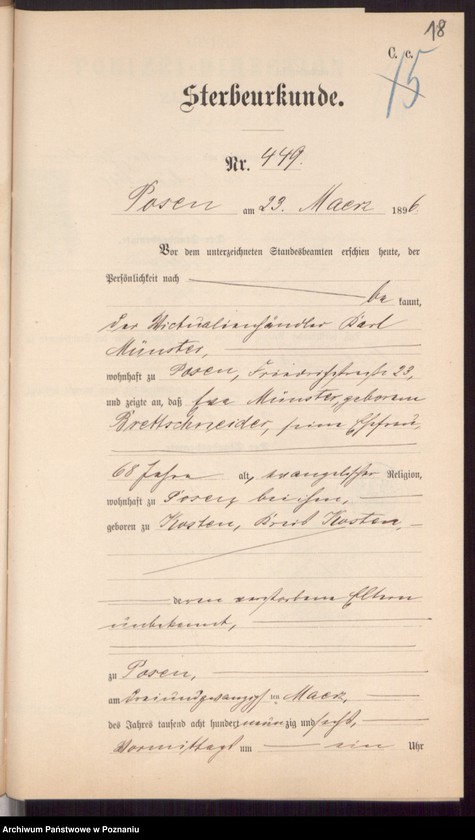 18
C. c.
15
Sterbeurkunde.
Nr. 449.
Posen am 23. Maerz 1896.
Vor dem unterzeichneten Standesbeamten erschien heute, der
Persönlichkeit nach
be kannt,
der Victualienhändler Karl
Münster,
wohnhaft zu Posen, Friedrichstraße 23,
und zeigte an, daß Eva Münster, geborene
Brettschneider, seine Ehefrau,
68 Jahre alt, evangelischer Religion,
wohnhaft zu Posen, bei ihm,
geboren zu Kosten, Kreis Kosten,
deren verstorbene Eltern
unbekannt,
zu Posen,
am dreiundzwanzigsten Maerz,
des Jahres tausend acht hundert neunzig und sechs,
Vormittags um ein Uhr
Archiwum Państwowe w Poznaniu